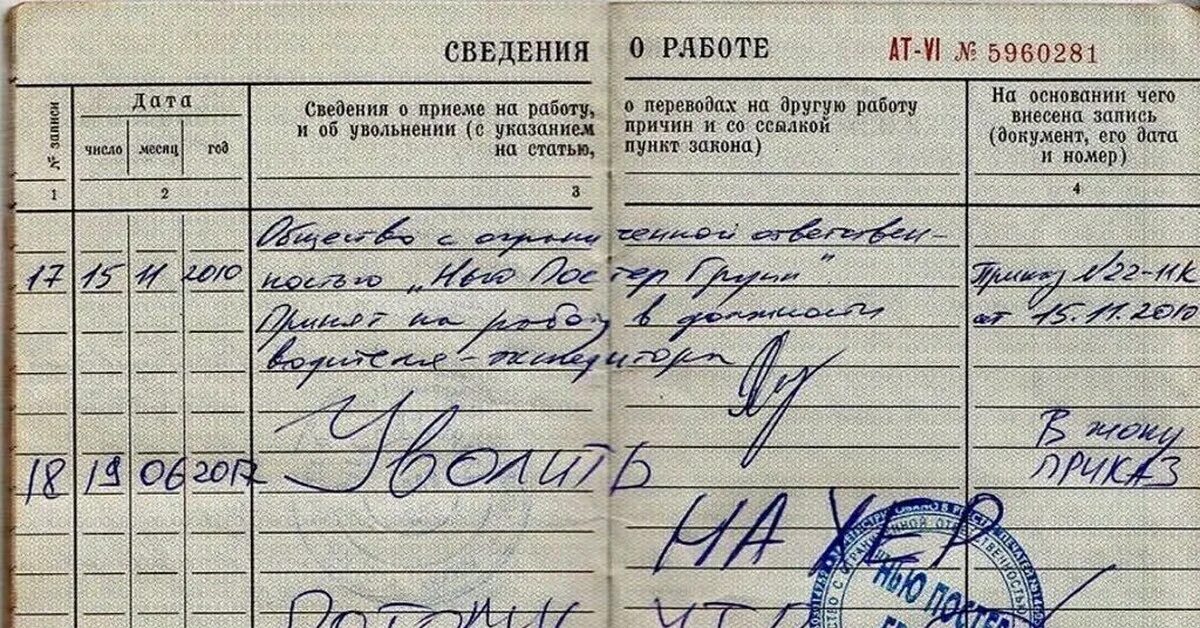 СВЕДЕНИЯ О РАБОТЕ АТ-VI № 5960281
№ записи
Дата
число месяц год
Сведения о приеме на работу, о переводах на другую работу
и об увольнении (с указанием причин и со ссылкой
на статью, пункт закона)
На основании чего
внесена запись
(документ, его дата
и номер)
1 2 3 4
Общество с ограниченной ответствен-
17 15 11 2010 ностью „Нью Постер Групп". Приказ №22-11К
Принят на работу в должности от 15.11.2010
водителя-экспедитора
В жопу
18 19 06 2017 Уволить ПРИКАЗ
НА ХЕР
НЬЮ ПОСТЕР